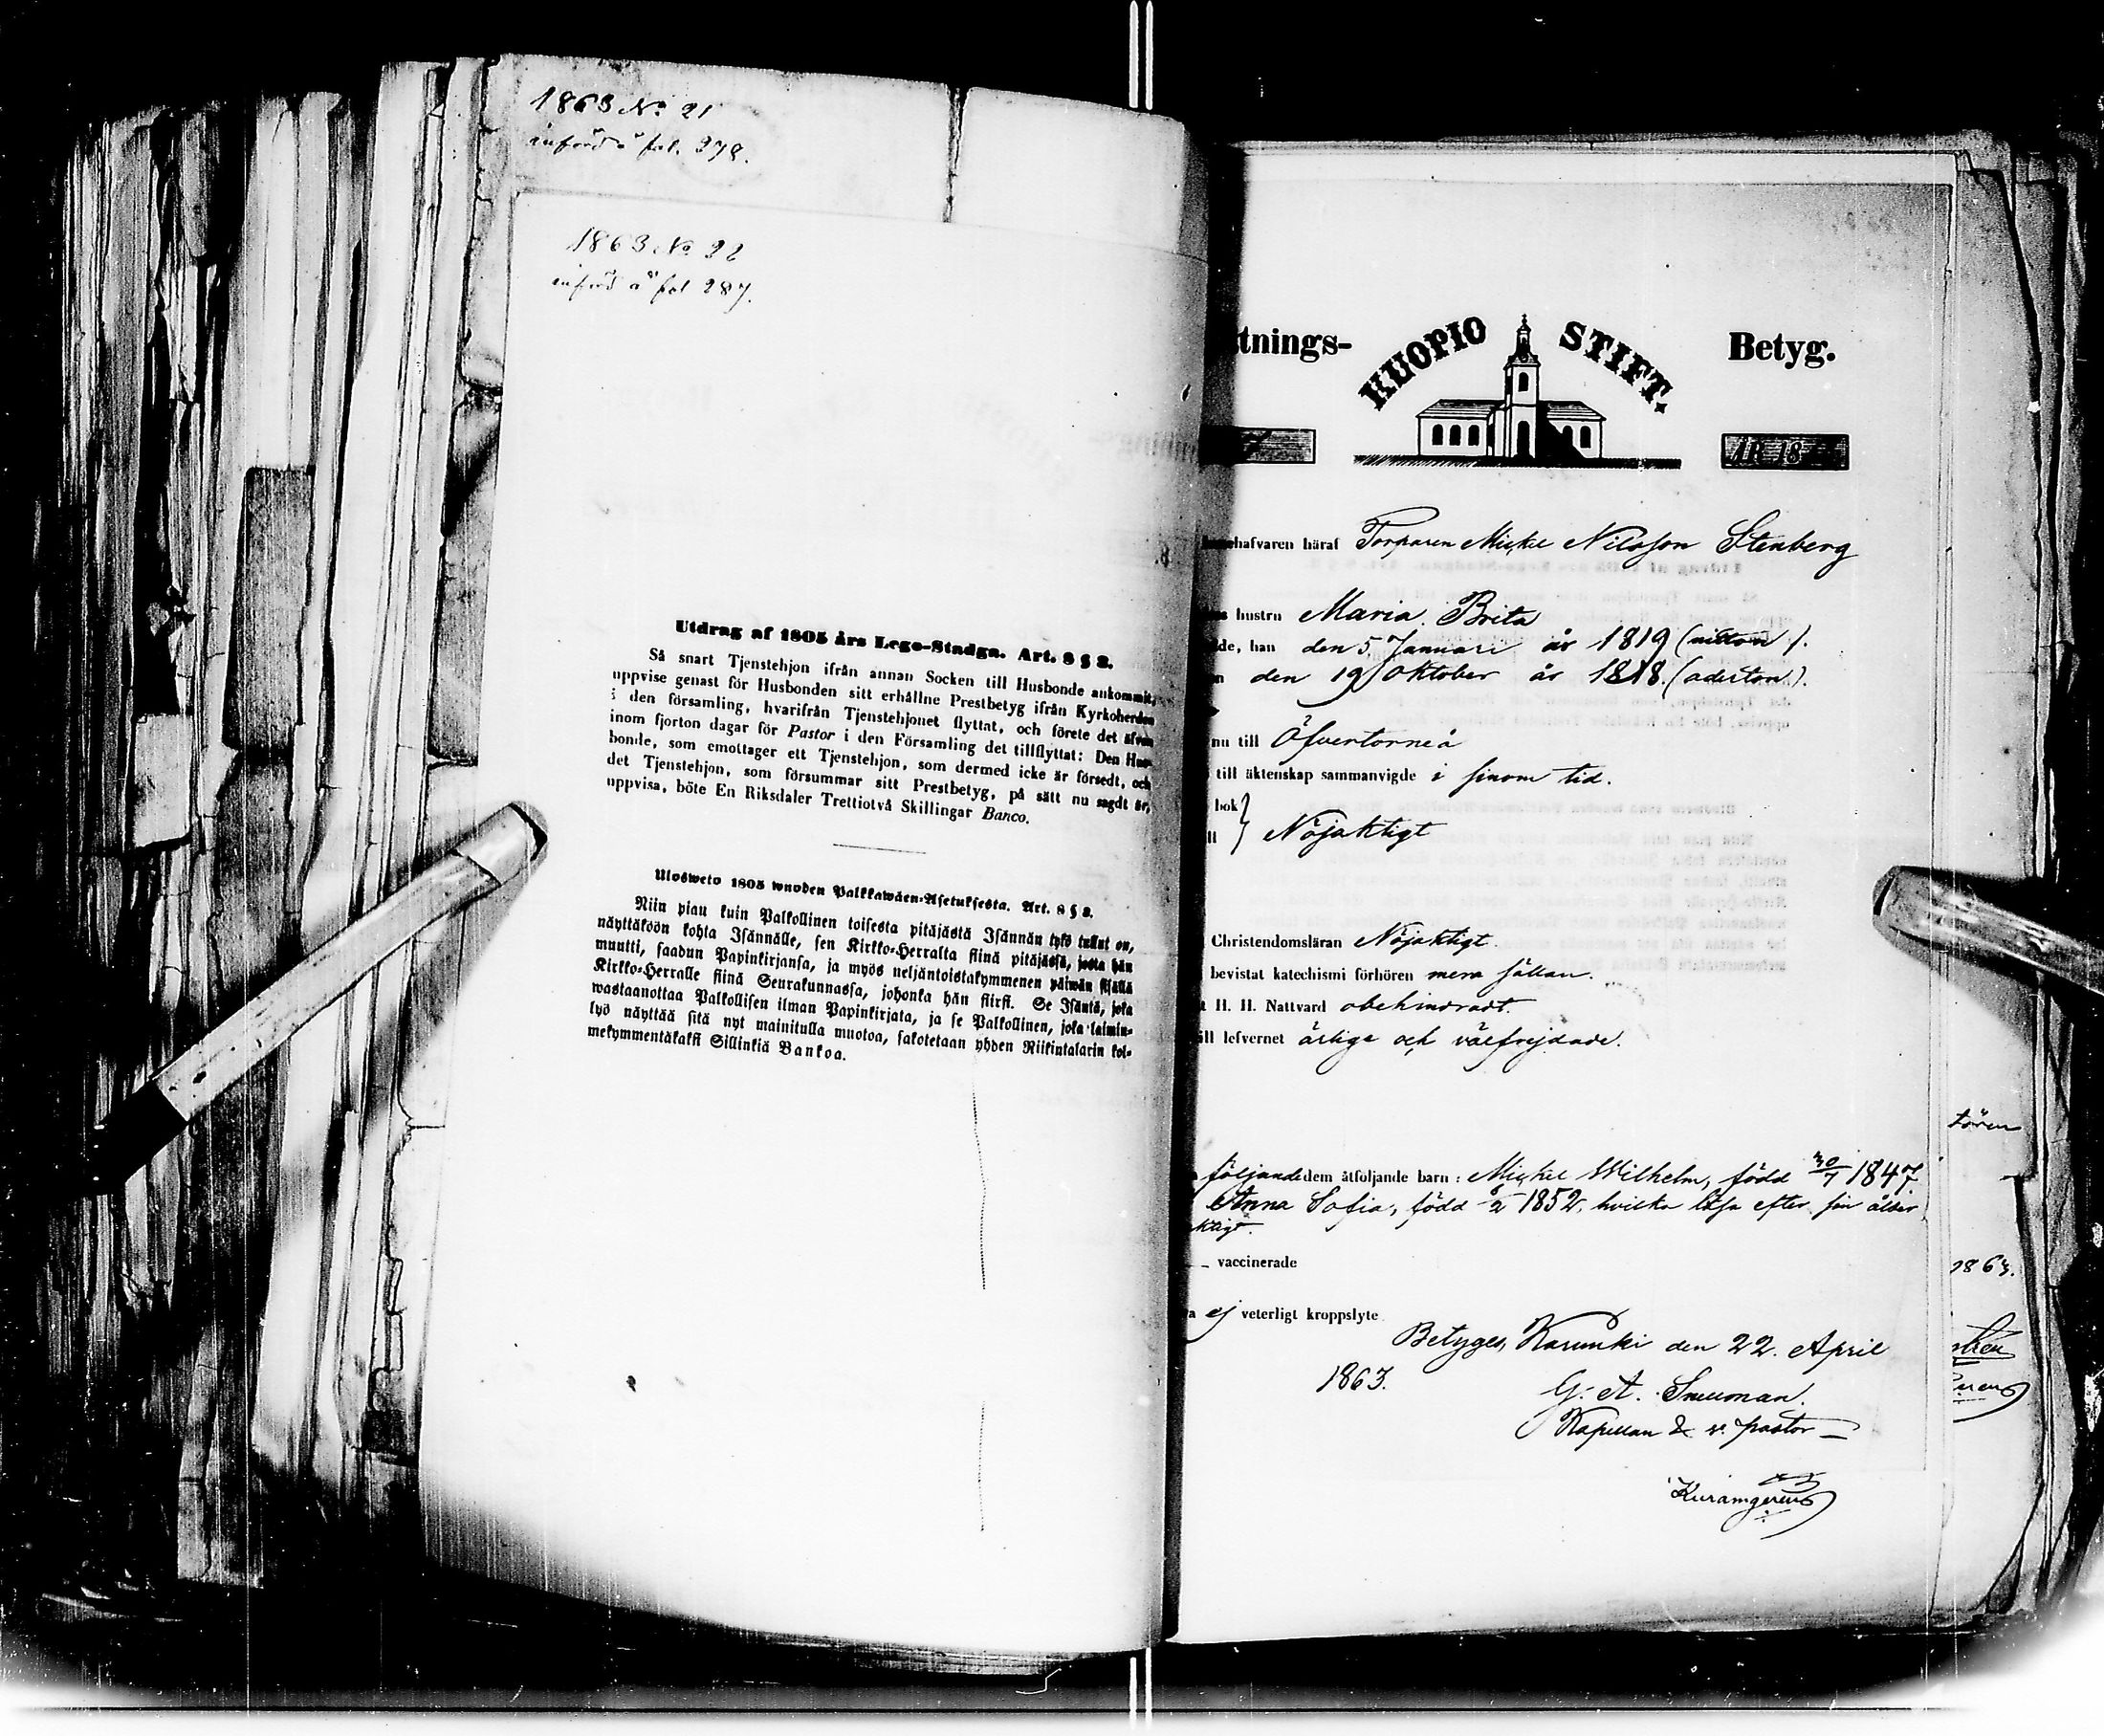 1863 No 21
införd å fol. 278.
1863 No 22
införd å fol 287.
Utdrag af 1805 års Lego-Stadga. Art. 8 § 3.
Så snart Tjenstehjon ifrån annan Socken till Husbonde ankommit,
uppvise genast för Husbonden sitt erhållne Prestbetyg ifrån Kyrkoherden
i den församling, hvarifrån Tjenstehjonet flyttat, och förete det äfven
inom fjorton dagar för Pastor i den Församling det tillflyttat: Den Hus-
bonde, som emottager ett Tjenstehjon, som dermed icke är försedt, och
det Tjenstehjon, som försummar sitt Prestbetyg, på sätt nu sagdt är,
uppvisa, böte En Riksdaler Trettiotvå Skillingar Banco.
Ulosweto 1805 wuoden Palkkawäen-Asetuksesta. Art. 8 § 3.
Niin piau kuin Palkollinen toisesta pitäjästä Isännän tykö tullut on,
näyttäköön kohta Isännälle, sen Kirkko-Herralta siinä pitäjässä, josta hän
muutti, saadun Papinkirjansa, ja myös neljäntoistakymmenen päiwän sisällä
Kirkko-Herralle siinä Seurakunnassa, johonka hän siirsi. Se Isäntä, joka
wastaanottaa Palkollisen ilman Papinkirjata, ja se Palkollinen, joka laimin-
lyö näyttää sitä nyt mainitulla muotoa, sakotetaan yhden Riikintalarin kol-
mekymmentäkaksi Sillinkiä Bankoa.
tnings- KUOPIO STIFT. Betyg.
ÅR 18
hafvaren häraf Torparen Mickel Nilsson Stenberg
hustru Maria Brita
de, han den 5 Januari år 1819 (nitton).
n den 19 Oktober år 1818. (aderton).
nu till Öfvertorneå
till äktenskap sammanvigde i sinom tid.
bok
ll } Nöjaktigt
Christendomsläran Nöjaktigt.
bevistat katechismi förhören mera sällan.
t H. H. Nattvard obehindradt.
ll lefvernet ärlige och välfrejdade.
följande dem åtföljande barn: Mickel Wilhelm, född 30/7 1847.
Anna Sofia, född 8/2 1852, hvilka läsa efter sin ålder
ktigt.
vaccinerade
a ej veterligt kroppslyte
Betyges, Karunki den 22. April
1863.
G. A. Snellman.
Kapellan & v. pastor
tören
1863.